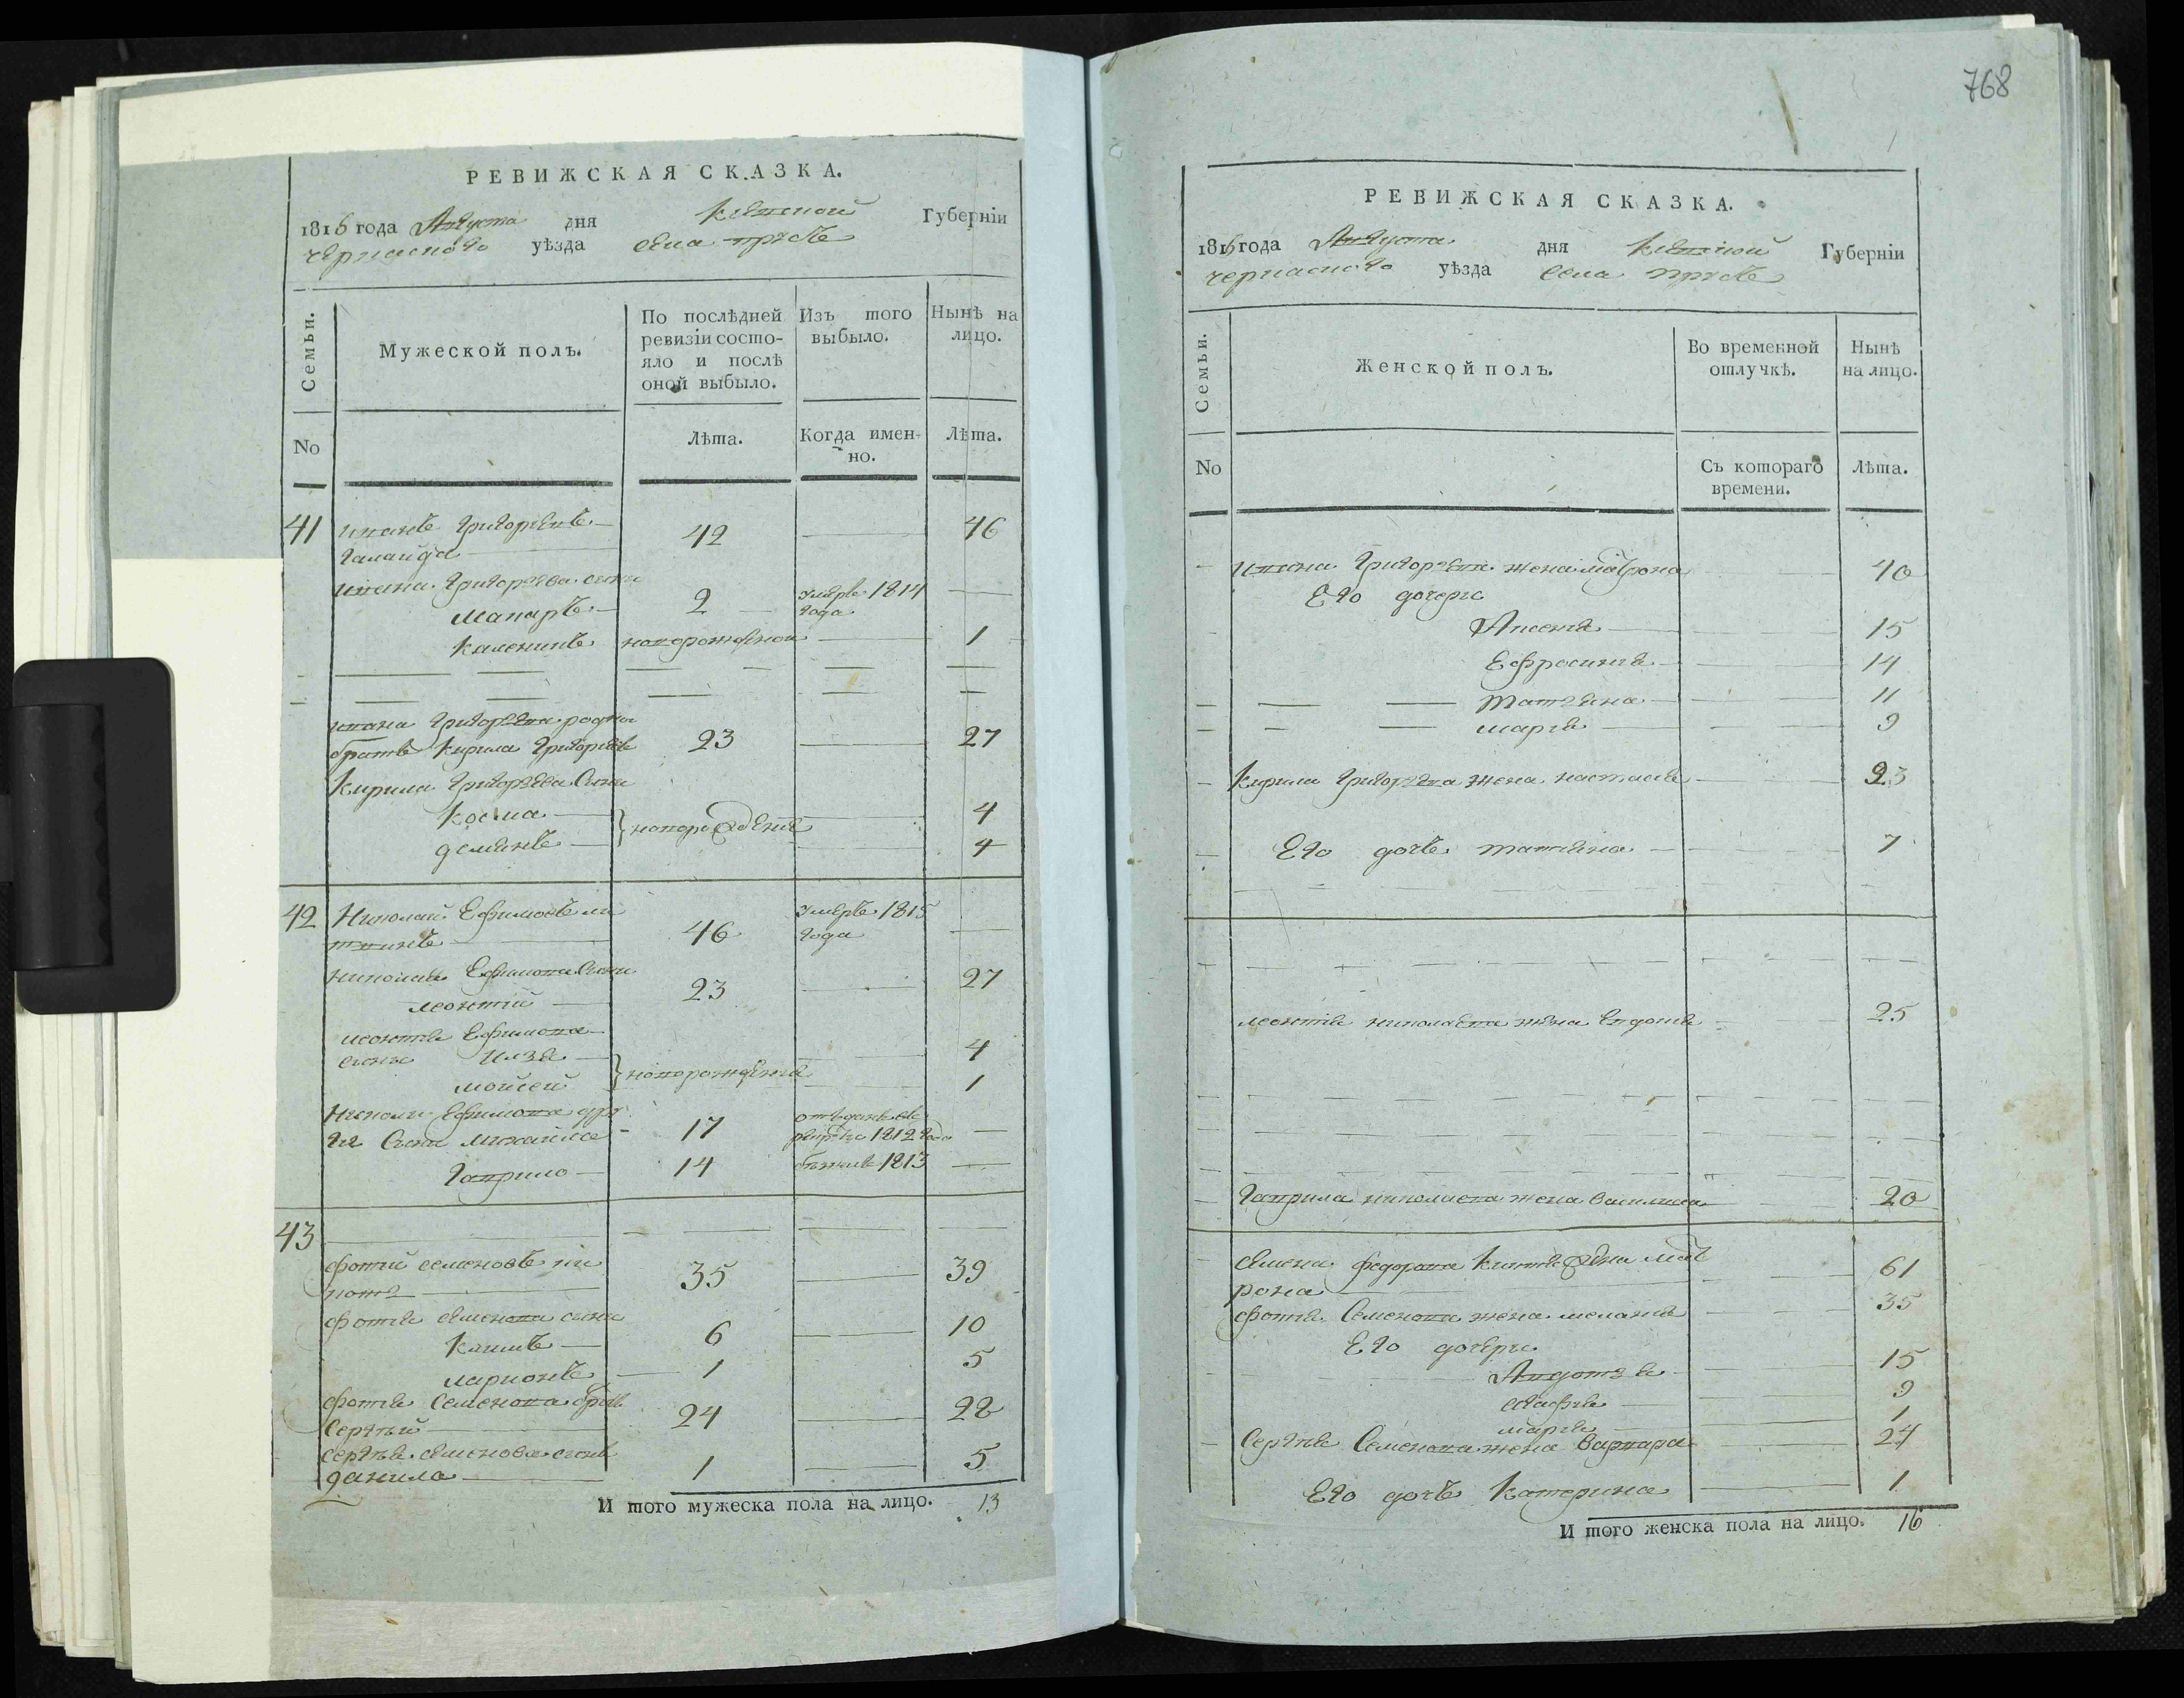 768
РЕВИЖСКАЯ СКАЗКА.
1816 года Августа дня Киевской Губерніи
черкаского уѣзда села
Семьи.
Мужеской полъ.
По послѣдней ревизіи состо-
яло и послѣ
оной выбыло.
Изъ того
выбыло.
Нынѣ на
лицо.
No
Лѣта.
Когда имен-
но.
Лѣта.
41 иванъ Григорьевъ 42 46
Галайда
ивана Григорьева сыни
макаръ 2 умеръ 1814
года
каленикъ новорожденой 1
ивана Григорьева родни
братъ Кирила Григорьевъ 23 27
Кирила Григорьева Сыни
Косма 4
новорожденіе
демянъ 4
42 Николай Ефимовъ ли 46 умеръ 1815
твинъ года
николая Ефимова Сыни
леонтій 23 27
леонтія Ефимова
сыни 4
новорожденіе
мойсей 1
Николи Ефимова дру
гіе Сыни михайло 17 отъданъ въ
рекруты 1812 года
Гаврило 14 бежалъ 1813
43
фотій семеновъ 35 39
фотія семенова сыни
Климъ 6 10
ларионъ 1 5
фотія Семенова братъ
Сергѣй 24 28
Сергѣя семенова сынъ
данило 1 5
И того мужеска пола на лицо. 13
РЕВИЖСКАЯ СКАЗКА.
1816 года Августа дня Киевской Губерніи
черкаского уѣзда села
Семьи.
Женской полъ.
Во временной
отлучкѣ.
Нынѣ
на лицо.
No
Съ котораго
времени.
Лѣта.
ивана Григорьева жена матрона 40
Его дочери
Аксенія 15
Ефросинія 14
татьяна 11
марія 9
Кирила Григорьева жена настасія 23
Его дочь татьяна 7
леонтія николаева жена Евдокія 25
Гаврила николаева жена василиса 20
семена федорова жена мат
рона 61
фотія Семенова жена меланія 35
Его дочери
Авдотья 15
агафія 9
марія 1
Сергѣя Семенова жена варвара 24
Его дочь Катерина 1
И того женска пола на лицо. 16